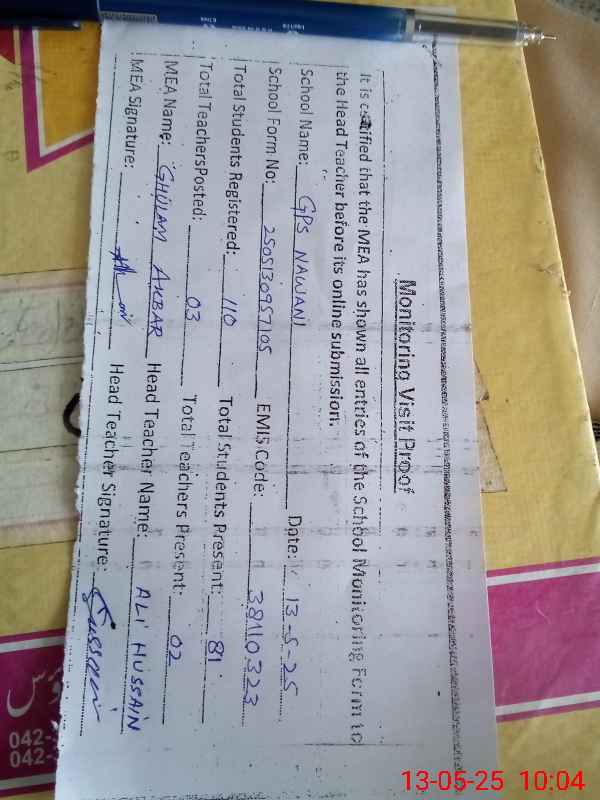 Monitoring Visit Proof
It is certified that the MEA has shown all entries of the School Monitoring Form to
the Head Teacher before its online submission.
School Name: GPS NAWANI Date: 13-5-25
School Form No: 2505130957105 EMIS Code: 38110323
Total Students Registered: 110 Total Students Present: 81
Total TeachersPosted: 03 Total Teachers Present: 02
MEA Name: GHULAM AKBAR Head Teacher Name: ALI HUSSAIN
MEA Signature: Head Teacher Signature: Hussain
042-
042-
13-05-25 10:04